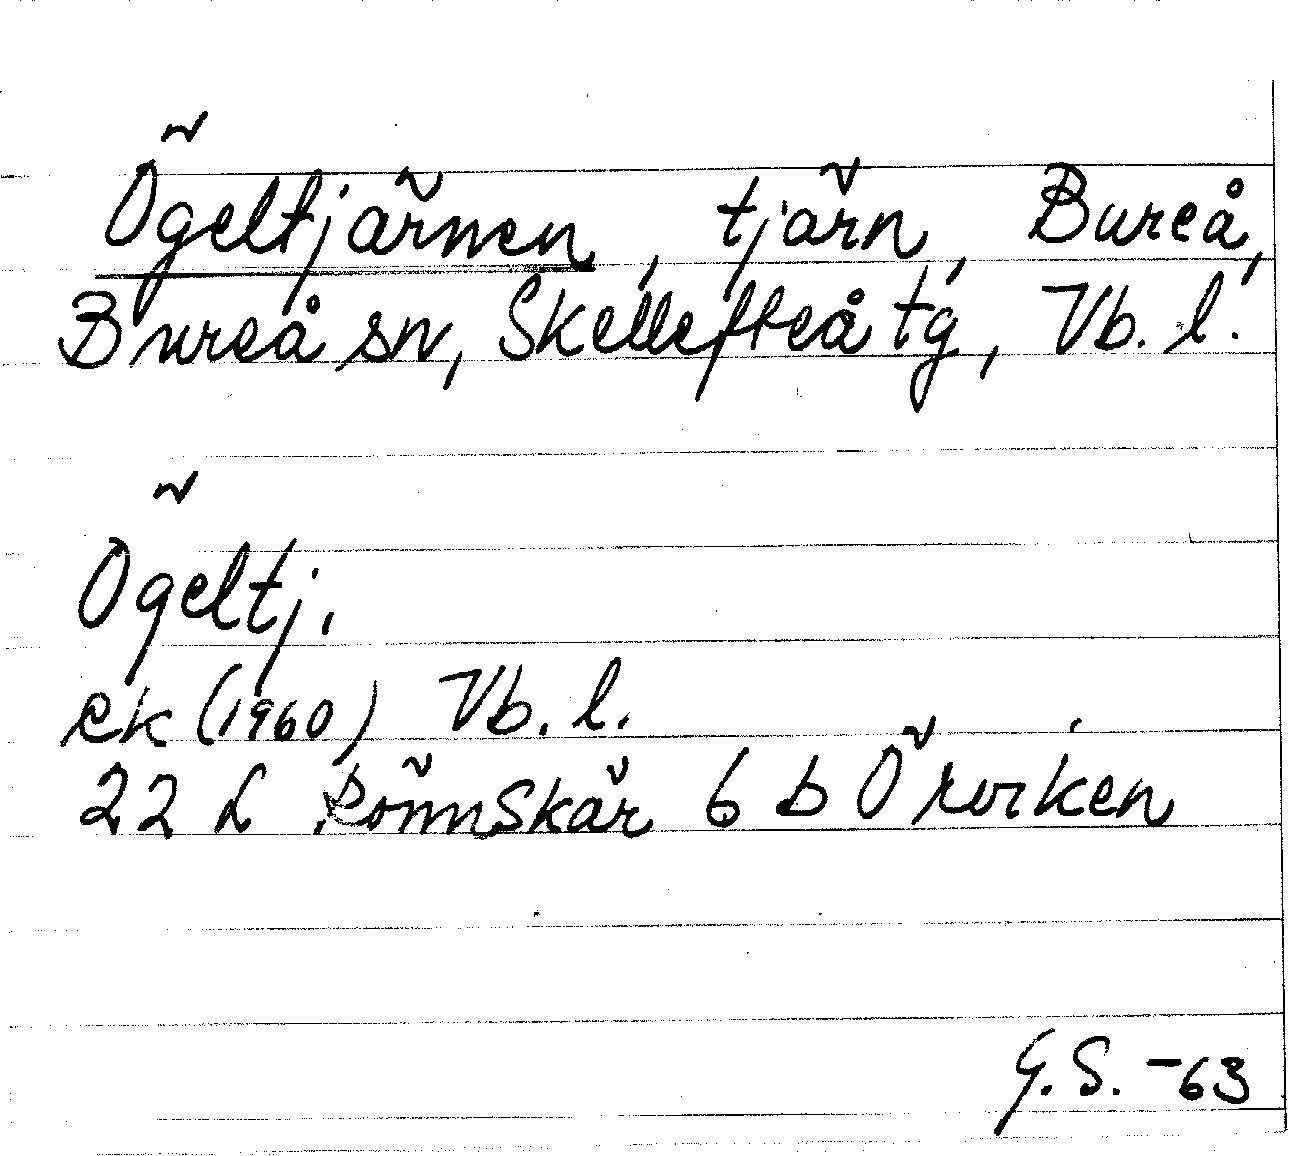 Ögeltjärnen, tjärn, Bureå,
Bureå sn, Skellefteå tg, Vb. l.
Ögeltj.
ek (1960) Vb. l.
22 L Rönnskär 6 b Örviken
G.S. -63